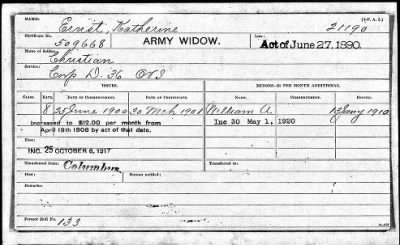 NAME: Ernst, Katherine 21190 (3-P. A. 2.)
Certificate No. 509668 ARMY WIDOW. Act of June 27, 1890.
Name of Soldier: Christian
Service: Corp D. 36 OVI
ISSUES. MINORS—$2 PER MONTH ADDITIONAL.
CLASS. RATE. DATE OF COMMENCEMENT. DATE OF CERTIFICATE. DATE OF COMMENCEMENT.
8 25 June 1900 30 Mch 1901 William A. 13 Jany 1910
Increased to $12.00 per month from Inc 30 May 1, 1920
April 19th 1908 by act of that date.
INC. 25 OCTOBER 6, 1917
Transferred from Columbus Transferred to
Died Bureau notified
Remarks:
Former Roll No. 133